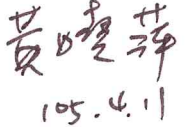 黃曉萍
105.4.11